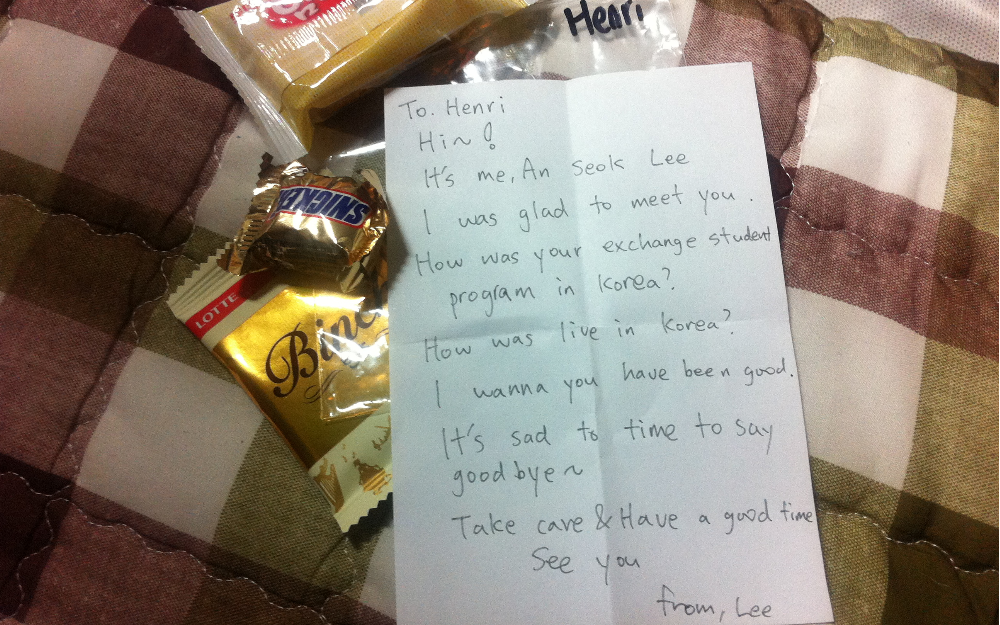 Henri
SNICKERS
LOTTE
To. Henri
Hi~!
It's me, An Seok Lee
I was glad to meet you.
How was your exchange student
program in Korea?
How was live in Korea?
I wanna you have been good.
It's sad to time to say
good bye~
Take care & Have a good time
See you
from, Lee